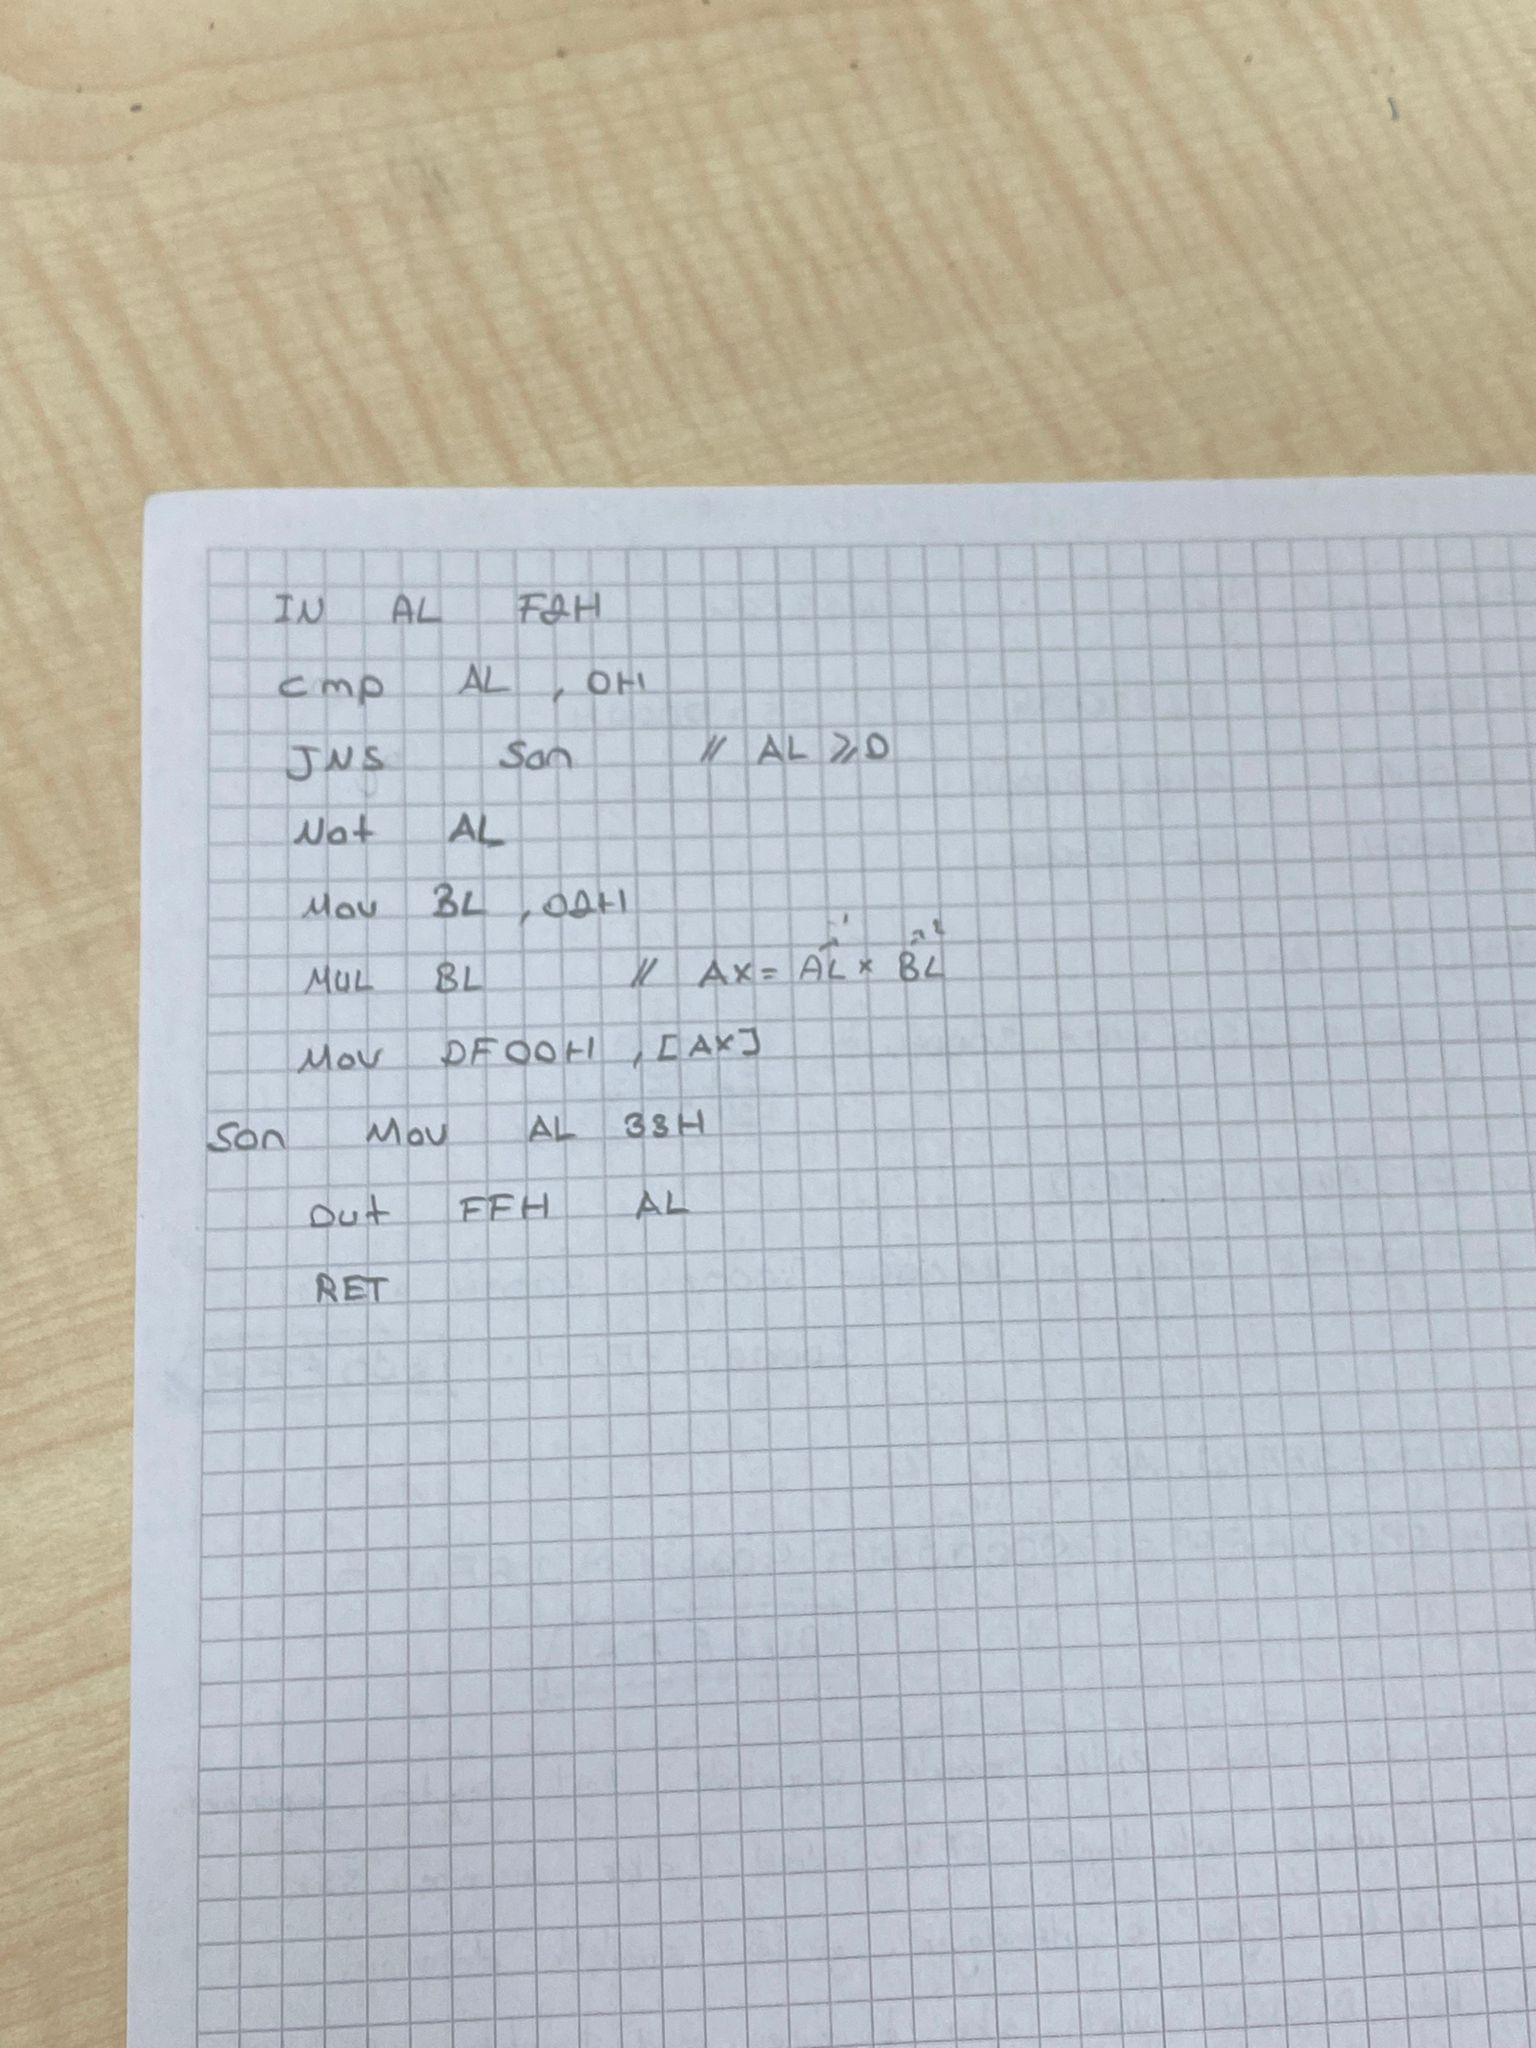 IN AL F2H
cmp AL , 0H
JNS Son // AL ⩾0
Not AL
Mov BL , 02H
MUL BL // AX = AL x BL
Mov DF00H , [AX]
Son Mov AL 38H
Out FFH AL
RET